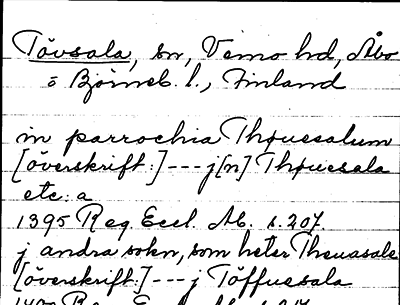 Tövsala, sn, Vemo hd, Åbo
o Björneb. l., Finland
in parrochia Thøuesalum
[överskrift:] --- j[n] Thøuesala
etc: a
1395 Reg. Eccl. Ab. s. 207.
j andra sokn, som heter Theuasale
[överskrift:] --- j Töffuesala